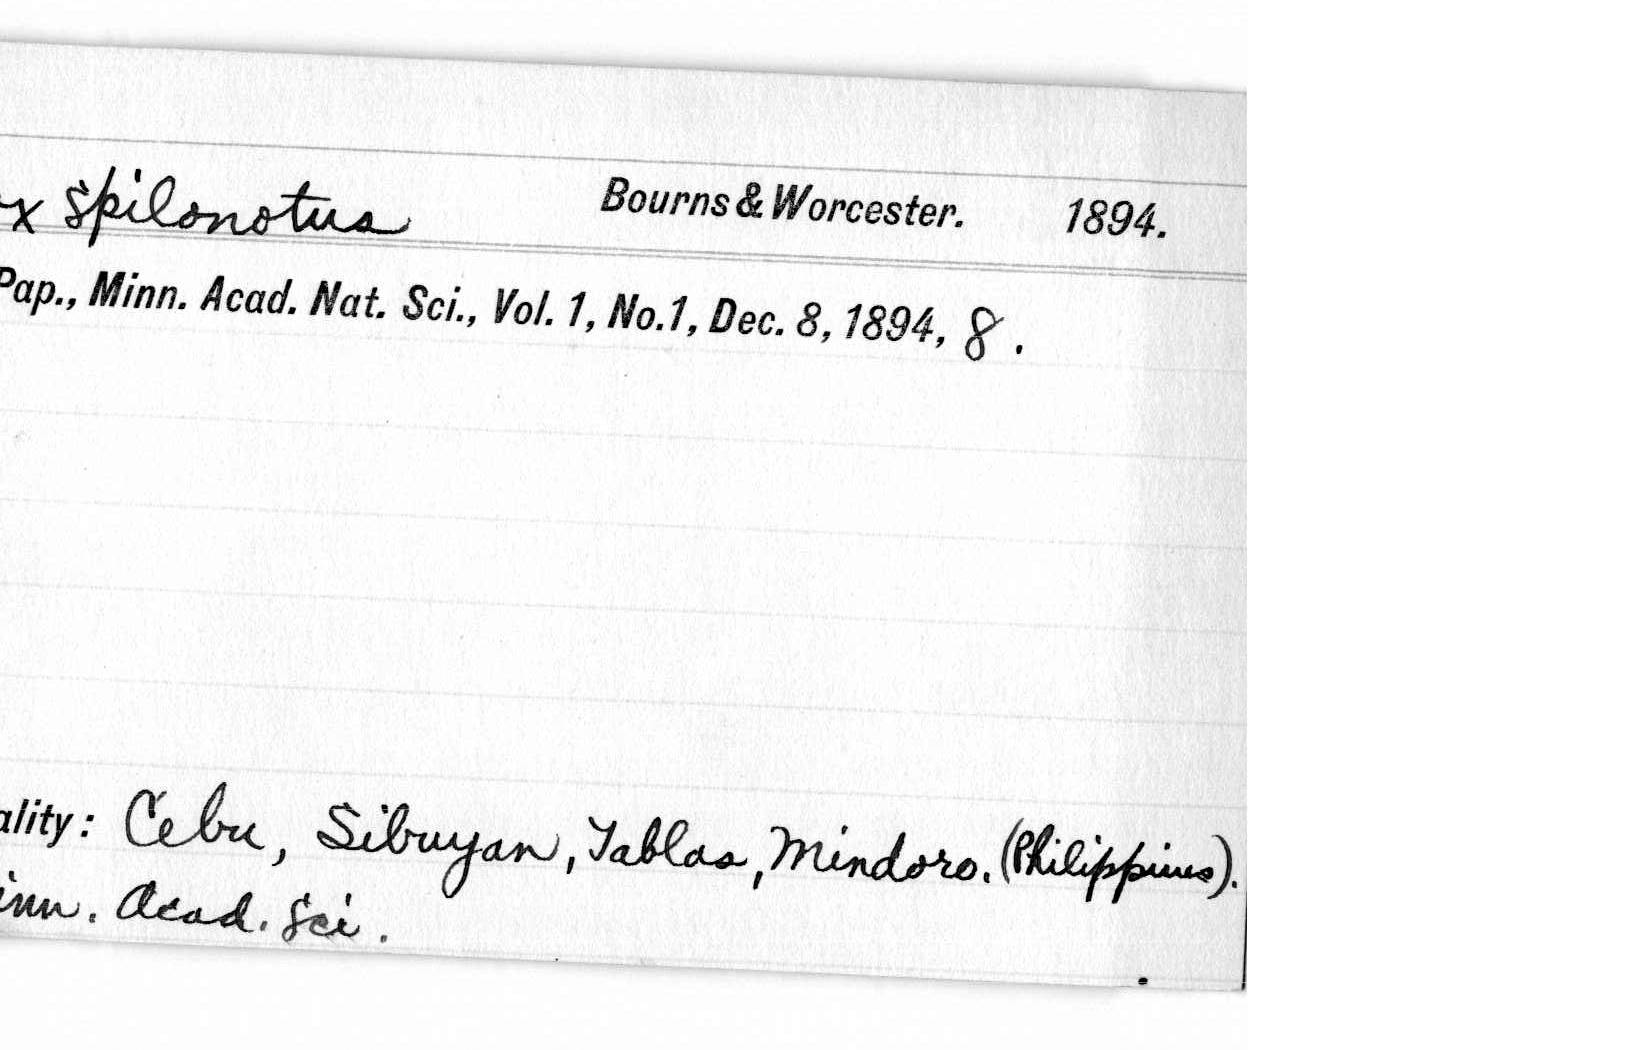 x spilonotus Bourns & Worcester. 1894.
Pap., Minn. Acad. Nat. Sci., Vol. 1, No. 1, Dec. 8, 1894, 8.
ality: Cebu, Sibuyan, Tablas, Mindoro. (Philippines).
inn. Acad. Sci.